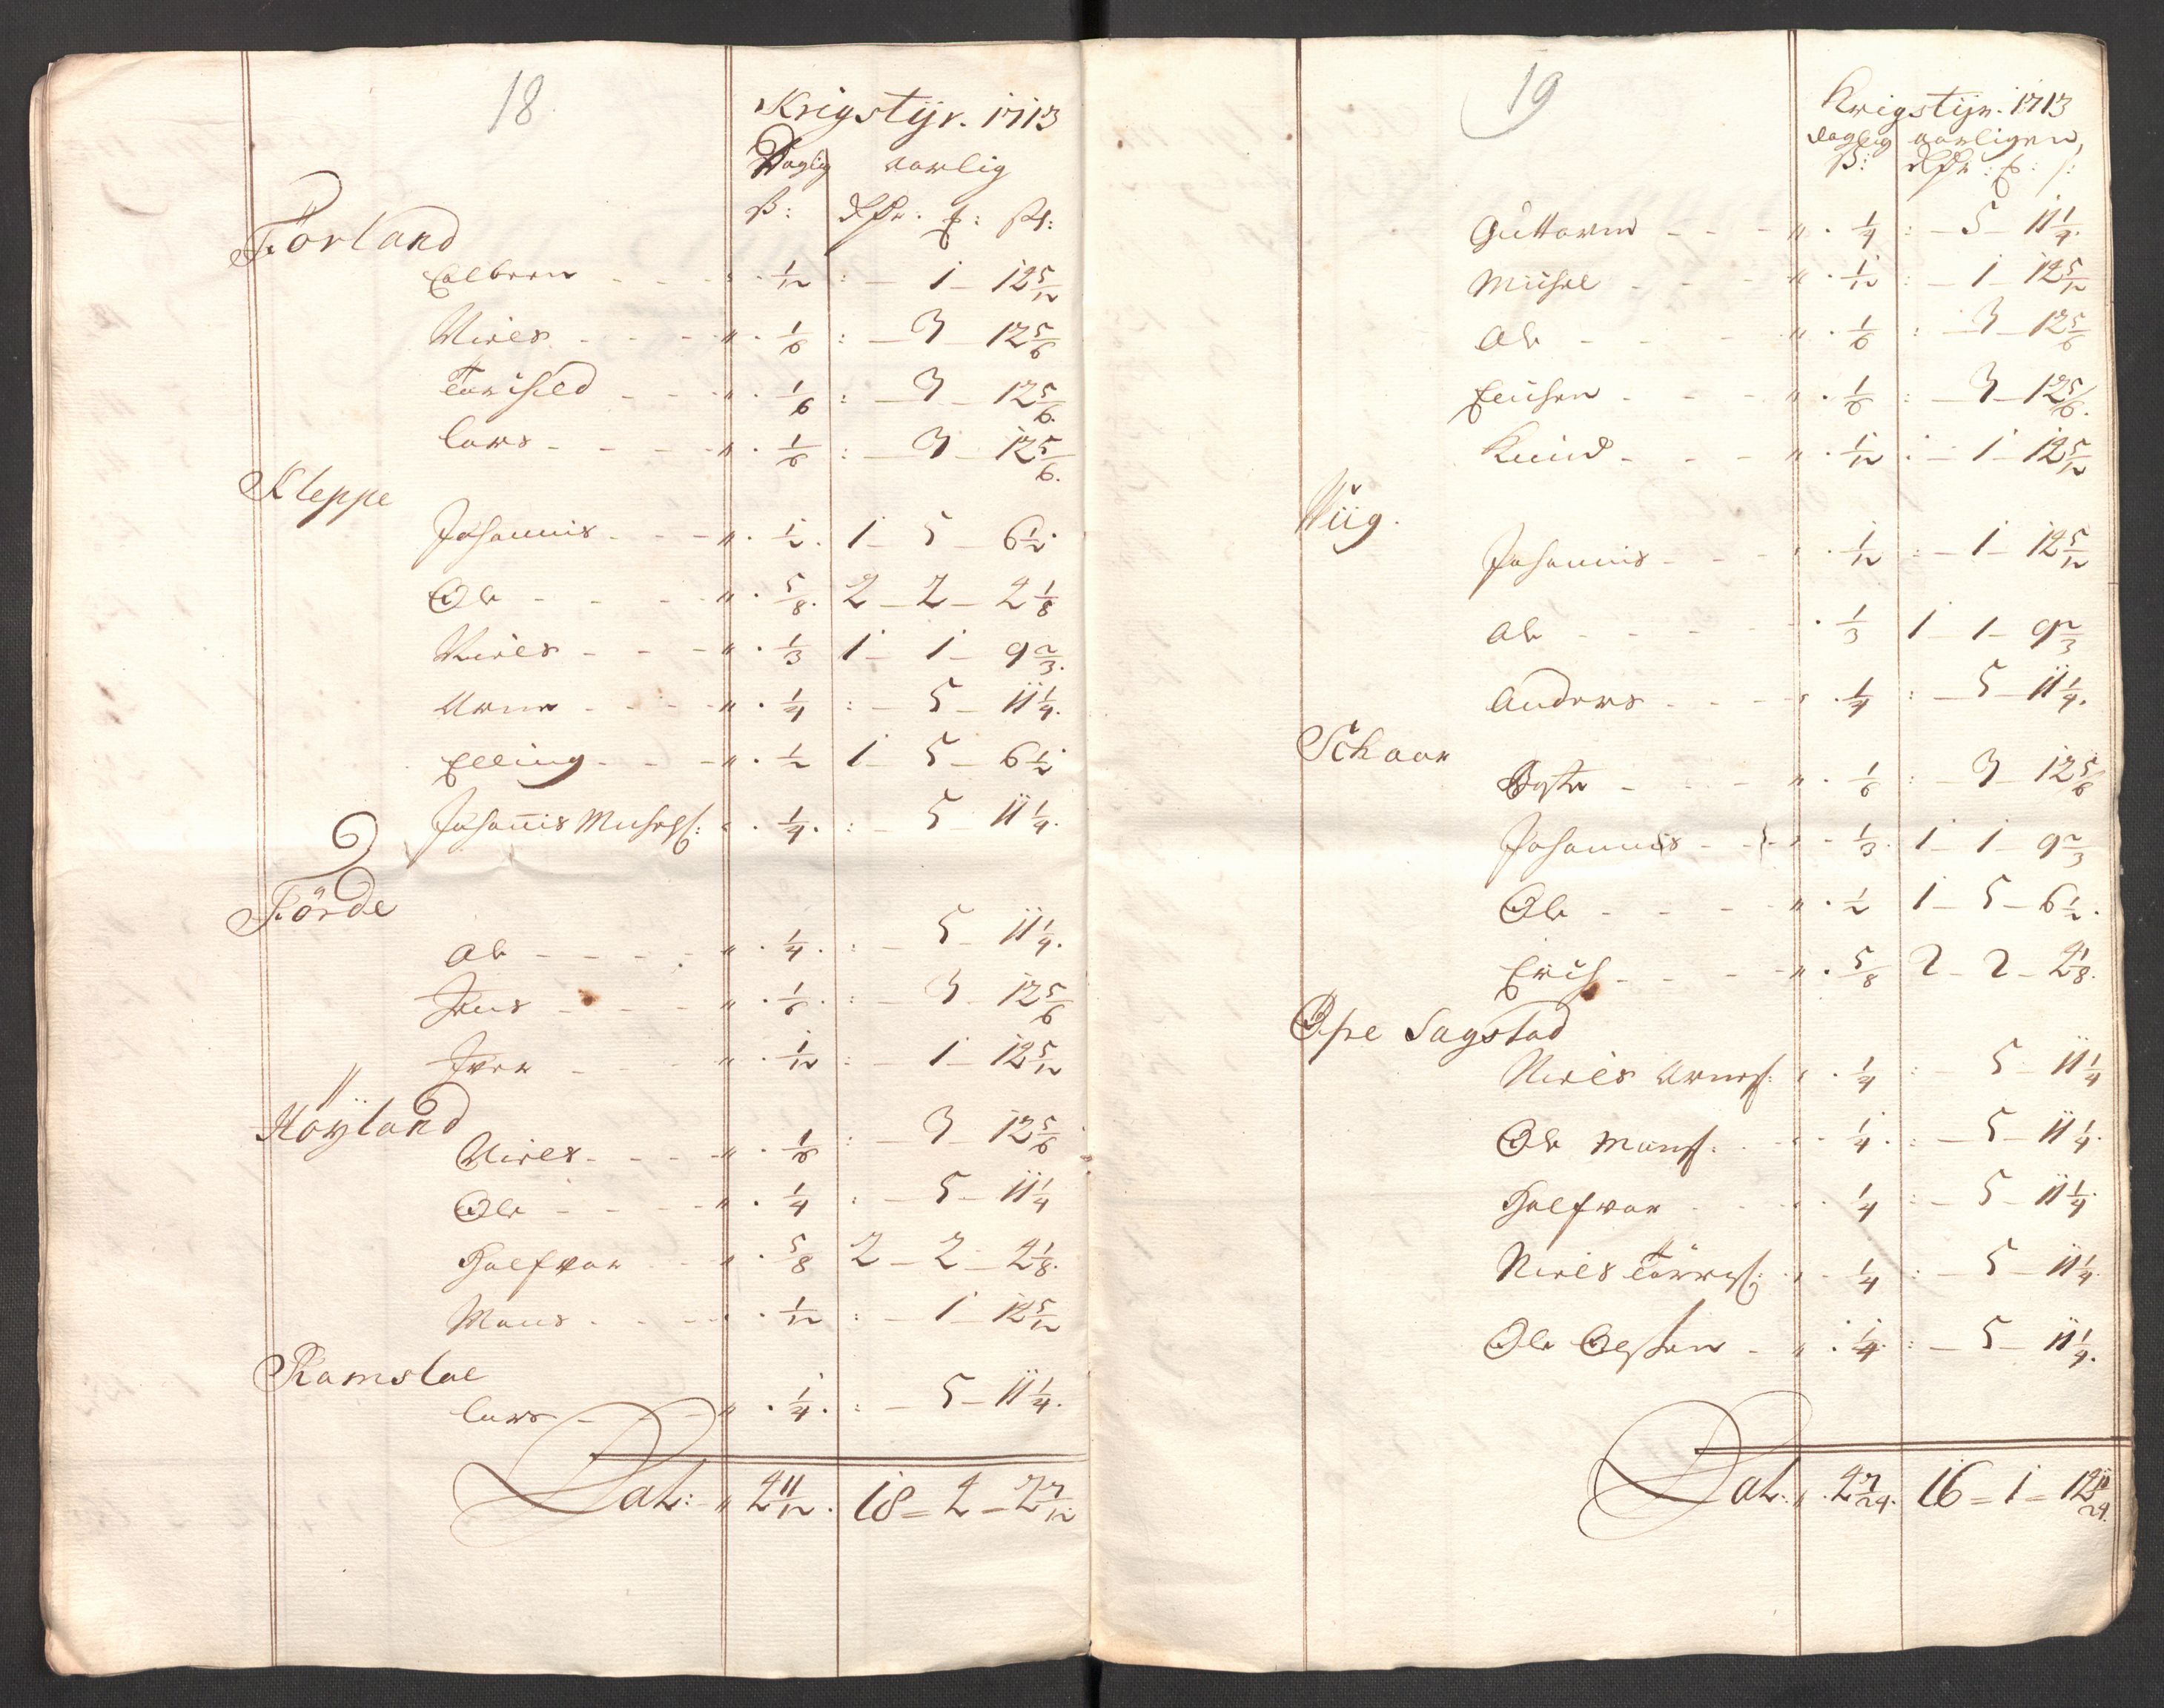 18
Krigstÿr. 1713
Daglig aarlig
ß: dhr. £: ßl:
Förland
Colbeen - - - : . 1/12 : - 1 - 12 5/12
Niels - - - " . 1/6 : - 3 - 12 5/6
Torchild - - " . 1/6 : - 3 - 12 5/6.
Lars - - - " . 1/6 : - 3 - 12 5/6.
Kleppe
Johannis - - " . 1/2 . 1 - 5 - 6 1/2.
Ole - - - " . 5/8. 2 - 2 - 2 1/8
Niels - - - " . 1/3 1 - 1 - 9 2/3.
Arne - - - " . 1/4 : - 5 - 11 1/4.
Elling - - - " . 1/2 1 - 5 - 6 1/2
Johan̄is : " . 1/4. : - 5 - 11 1/4.
Förde
Ole - - - " . 1/4. : - 5 - 11 1/4.
Jens - - - " . 1/6. : - 3 - 12 5/6
Iver - - - " . 1/12 : - 1 - 12 5/12
Höÿland
Niels - - - " . 1/6 : - 3 - 12 5/6
Ole - - - " . 1/4 : - 5 - 11 1/4
Halfvor - - " . 5/8 2 - 2 - 2 1/8.
Mons - - - . 1/12 : - 1 - 12 5/12
Ramslae
Lars - - - " . 1/4. : - 5 - 11 1/4.
Lat: " 4 11/12. 18 - 4 - 2 7/12
19
Krigstÿr. 1713
daglig aarligen,
ß: dhr: £: ß:
Guttorm - - - " . 1/4 : - 5 - 11 1/4.
Michel - - - " . 1/12 : - 1 - 12 5/12
Ole - - - " . 1/6 : - 3 - 12 5/6
- - - " . 1/6 : - 3 - 12 5/6.
Knud - - - " . 1/12 : - 1 - 12 5/12
Viig.
Johannis - - " . 1/12 : - 1 - 12 5/12
Ole - - - . 1/3 1 1 - 9 2/3
Anders - - - " . 1/4 : - 5 - 11 1/4.
Schaar
- - - " . 1/6 : - 3 12 5/6
Johannes - - " - 1/3. 1 - 1 - 9 2/3
Ole - - - " . 1/2 1 - 5 - 6 1/2.
Erich - - - " . 5/8 2 - 2 - 2 1/8.
Øfre Sagstad
Niels Arnes: " . 1/4 : - 5 - 11 1/4
Ole Mons: . . 1/4. : - 5 - 11 1/4.
Halfvor - - . 1/4 : - 5 - 11 1/4.
Niels Törris: . . 1/4 : - 5 - 11 1/4.
Ole Olssen - " . 1/4. : - 5 - 11 1/4.
Lat: " . 4 7/24. 16 - 1 - 12 /24.